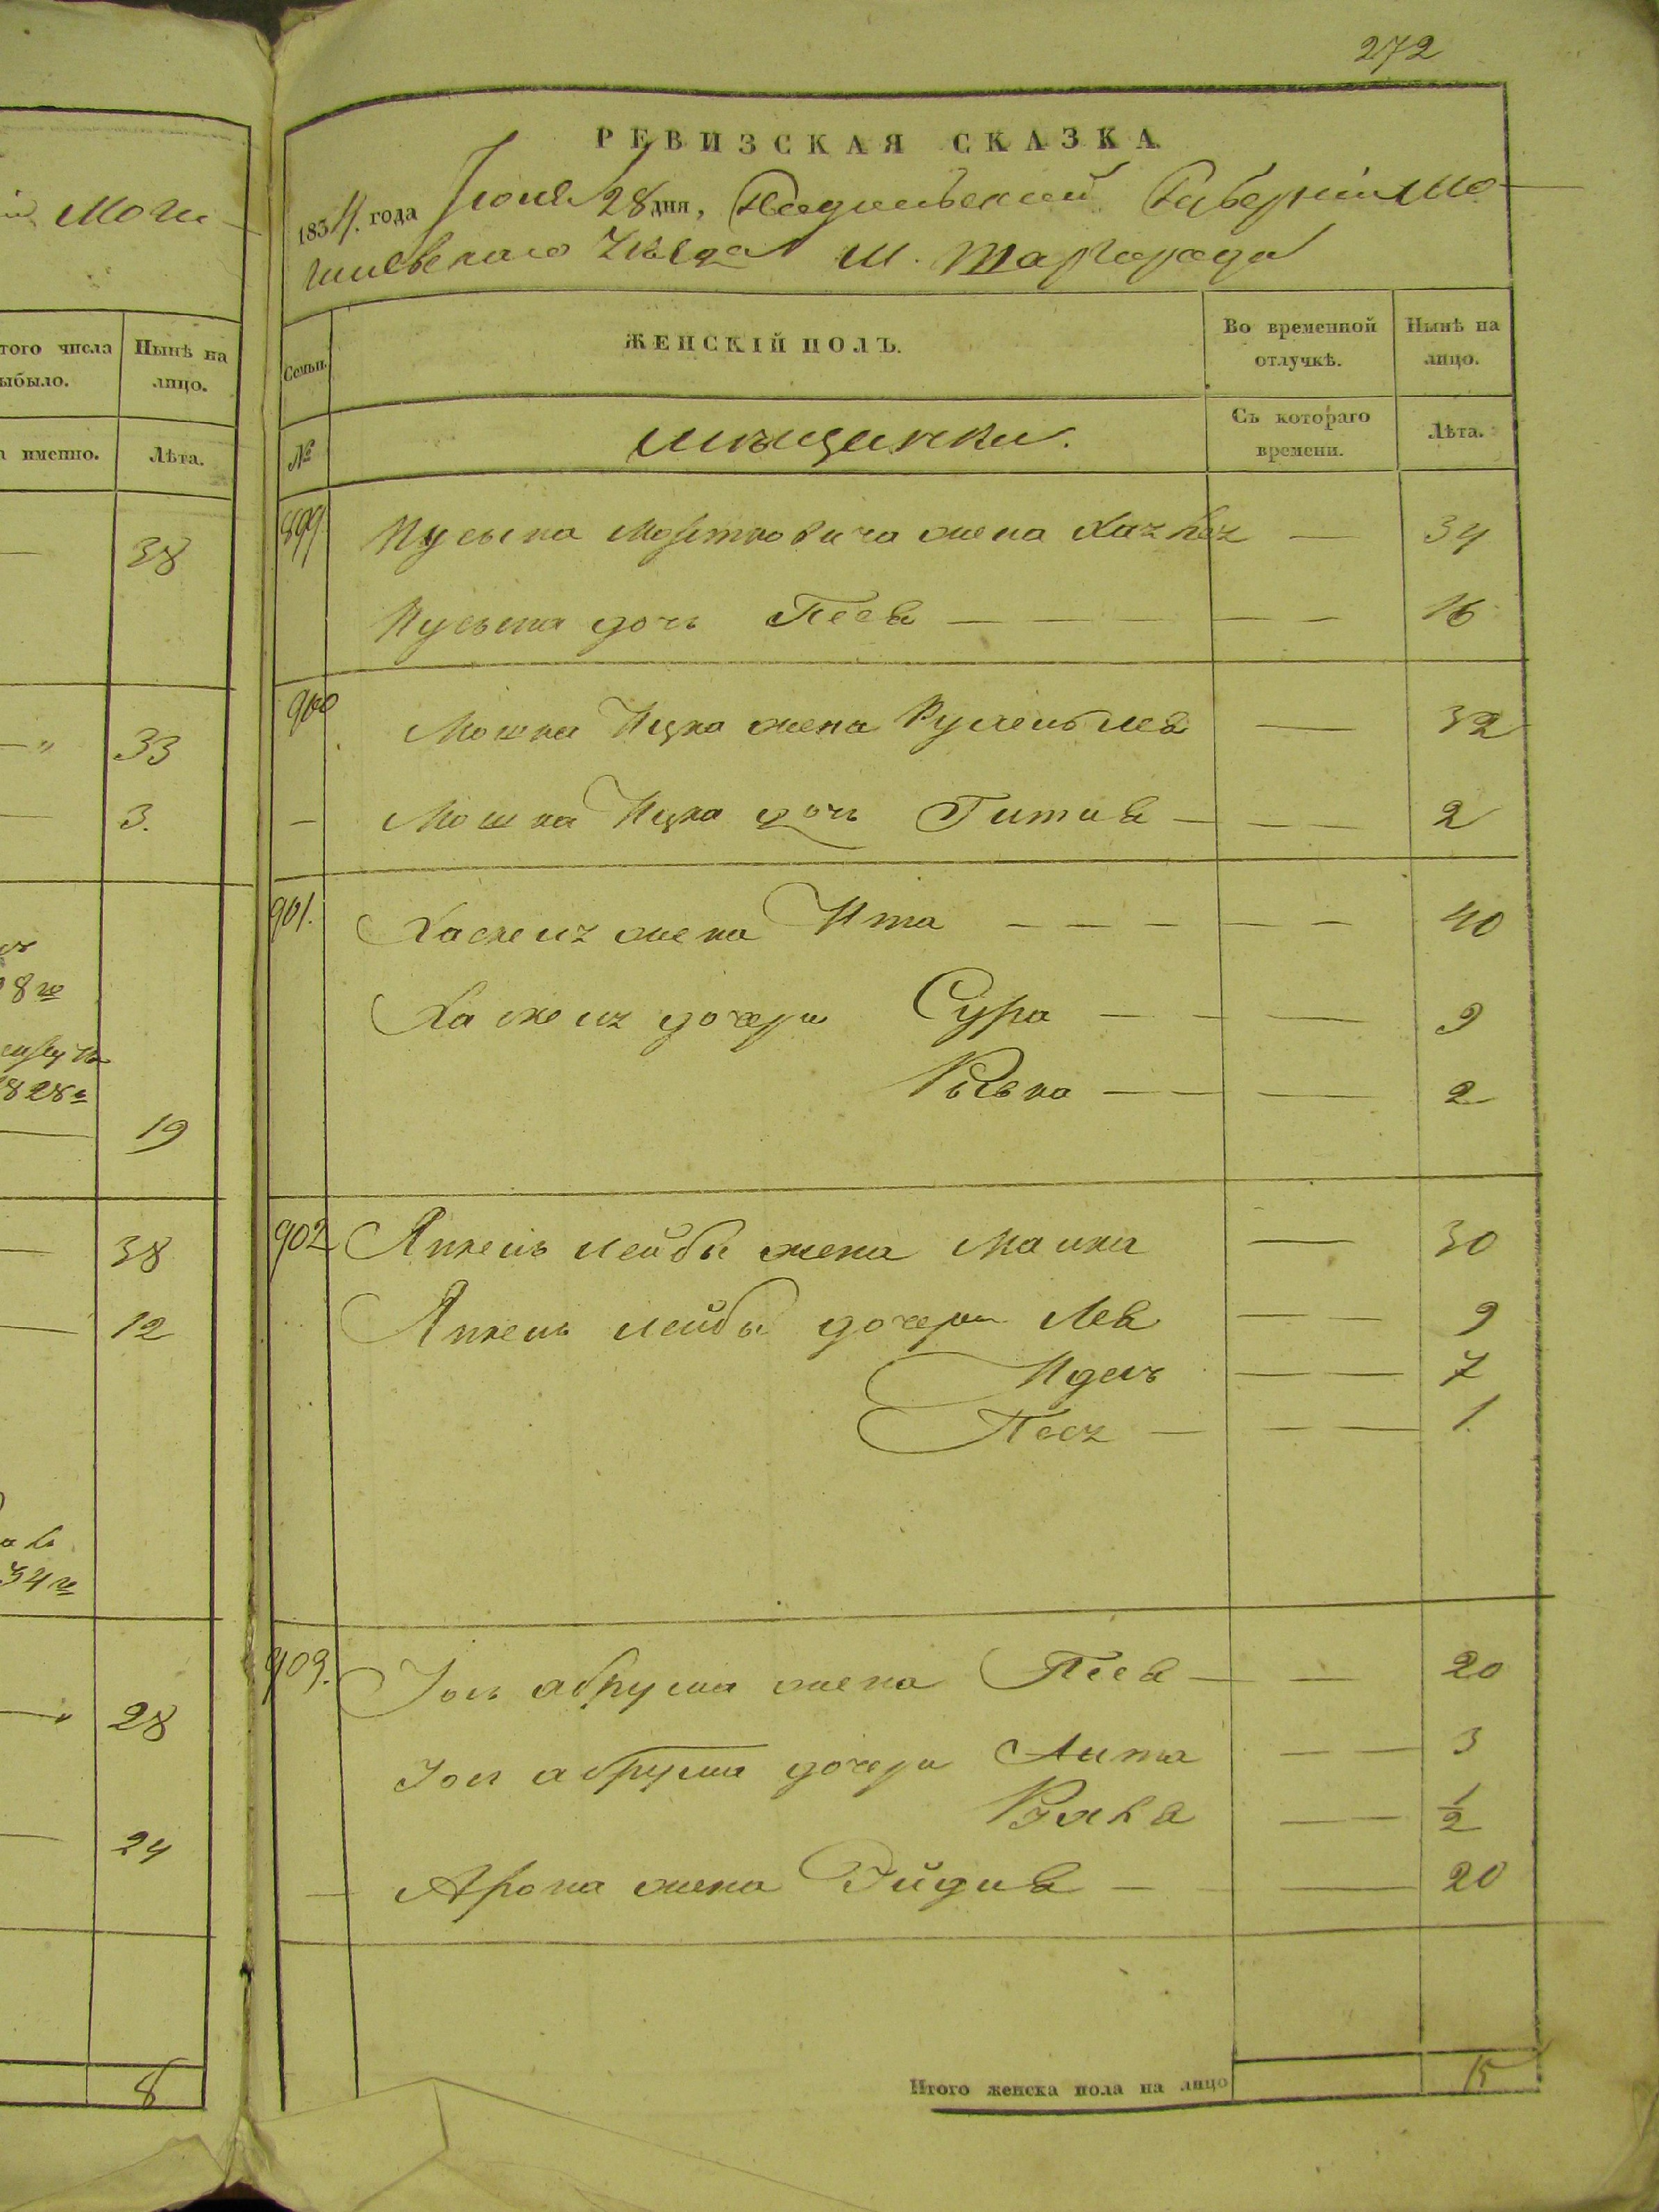 272
РЕВИЗСКАЯ СКАЗКА
1834. года Іюня 28 дня, Подольской Губерніи Мо-
гилевскаго Уѣзда м. Шаргорода
Семьи.
ЖЕНСКІЙ ПОЛЪ.
Во временной отлучкѣ.
Нынѣ на лицо.
№
мѣщанки.
Съ котораго времени.
Лѣта.
899. жена — 34
дочь Песя — — — — — 16
900 Мошка Ицка жена — 32
— Мошка Ицка дочь Гитля — — — 2
901. Хаскель жена Ита — — — — — 40
Хаскель дочери Сура — — — 9
Ривка — — — 2
902 Янкель Лейбы жена Малка — 30
Янкель Лейбы дочери Лея — — 9
Идель — — 7
Песя — — — 1.
903. Іось Абрума жена Песя — — 20
Іось Абрума дочери — — 3
— — 1/2
— Арона жена Эйдля — — 20
Итого женска пола на лицо 15
Моги-
того числа
ыбыло.
Нынѣ на
лицо.
именно.
Лѣта.
— 38
— " 33
— 3.
1828
— 19
— 38
— 12
34
— 28
— 24
8